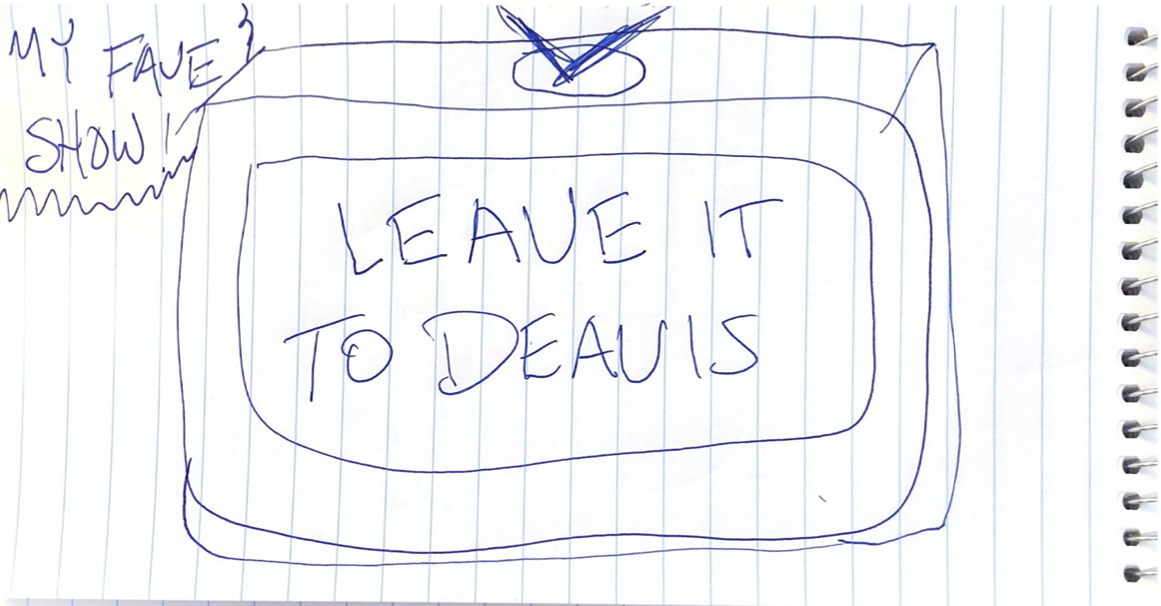 MY FAVE
SHOW!
LEAVE IT
TO DEAVIS